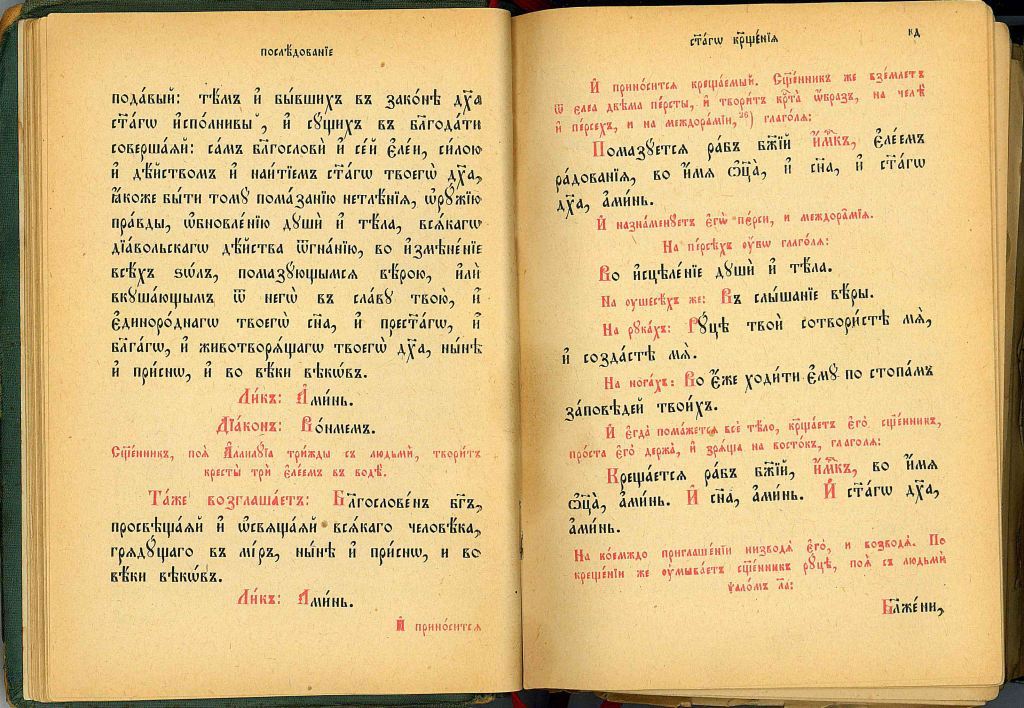 послѣ́дованїе
пода́вый: тѣ́мъ и҆ бы́вшихъ въ зако́нѣ дх҃а
ст҃а́гѡ и҆спо́лнивы́й, и҆ сꙋ́щихъ въ бл҃года́ти
соверша́яй: са́мъ бл҃гословѝ и҆ се́й є҆ле́й, си́лою
и҆ дѣ́йствомъ и҆ наи́тїемъ ст҃а́гѡ твоегѡ̀ дх҃а,
ꙗ҆́коже бы́ти томꙋ̀ пома́занїю нетлѣ́нїѧ, ѻ҆рꙋ́жїю
пра́вды, ѡ҆бновле́нїю дꙋшѝ и҆ тѣ́ла, всѧ́кагѡ
дїа́вольскагѡ дѣ́йства ѿгна́нїю, во и҆змѣне́нїе
всѣ́хъ ѕѡ́лъ, помазꙋ́ющымсѧ вѣ́рою, и҆лѝ
вкꙋша́ющымъ ѿ негѡ̀ въ сла́вꙋ твою̀, и҆
є҆диноро́днагѡ твоегѡ̀ сн҃а, и҆ прест҃а́гѡ, и҆
бл҃га́гѡ, и҆ животворѧ́щагѡ твоегѡ̀ дх҃а, ны́нѣ
и҆ при́снѡ, и҆ во вѣ́ки вѣкѡ́въ.
Ли́къ: А҆ми́нь.
Дїа́конъ: Во́нмемъ.
Сщ҃е́нникъ, поѧ̀ А҆ллилꙋ́їа три́жды съ людьмѝ, твори́тъ
кресты̀ трѝ є҆ле́емъ въ водѣ̀.
Та́же возглаша́етъ: Бл҃гослове́нъ бг҃ъ,
просвѣща́яй и҆ ѡ҆свѧща́яй всѧ́каго человѣ́ка,
грѧдꙋ́щаго въ мі́ръ, ны́нѣ и҆ при́снѡ, и҆ во
вѣ́ки вѣкѡ́въ.
Ли́къ: А҆ми́нь.
И҆ прино́ситсѧ
ст҃а́гѡ кр҃ще́нїѧ
кд
И҆ прино́ситсѧ креща́емый. Сщ҃е́нникъ же взе́млетъ
ѿ є҆ле́а двѣма̀ пє́рсты, и҆ твори́тъ крⷭ҇та̀ ѡ҆́бразъ, на челѣ̀
и҆ пе́рсехъ, и҆ на междора́мїи,²⁶) глаго́лѧ:
Помазꙋ́етсѧ ра́бъ бж҃їй и҆́м҃къ, є҆ле́емъ
ра́дованїѧ, во и҆́мѧ ѻ҆ц҃а̀, и҆ сн҃а, и҆ ст҃а́гѡ
дх҃а, а҆ми́нь.
И҆ назна́менꙋетъ є҆гѡ̀ пє́рси, и҆ междора́мїѧ.
На пе́рсѣхъ ᲂу҆́бѡ глаго́лѧ:
Во и҆сцѣле́нїе дꙋшѝ и҆ тѣ́ла.
На ᲂу҆шесѣ́хъ же: Въ слы́шанїе вѣ́ры.
На рꙋка́хъ: Рꙋ́цѣ твоѝ сотвори́стѣ мѧ̀,
и҆ созда́стѣ мѧ̀.
На нога́хъ: Во є҆́же ходи́ти є҆мꙋ̀ по стопа́мъ
за́повѣдей твои́хъ.
И҆ є҆гда̀ пома́жетсѧ всѐ тѣ́ло, кр҃ща́етъ є҆го̀ сщ҃е́нникъ,
про́ста є҆го̀ держа̀, и҆ зрѧ́ща на восто́къ, глаго́лѧ:
Креща́етсѧ ра́бъ бж҃їй, и҆́м҃къ, во и҆́мѧ
ѻ҆ц҃а̀, а҆ми́нь. И҆ сн҃а, а҆ми́нь. И҆ ст҃а́гѡ дх҃а,
а҆ми́нь.
На ко́емждо приглаше́нїи низводѧ̀ є҆го̀, и҆ возводѧ̀. По
креще́нїи же ᲂу҆мыва́етъ сщ҃е́нникъ рꙋ́цѣ, поѧ̀ съ людьмѝ
ѱало́мъ л҃а:
Бл҃же́ни,